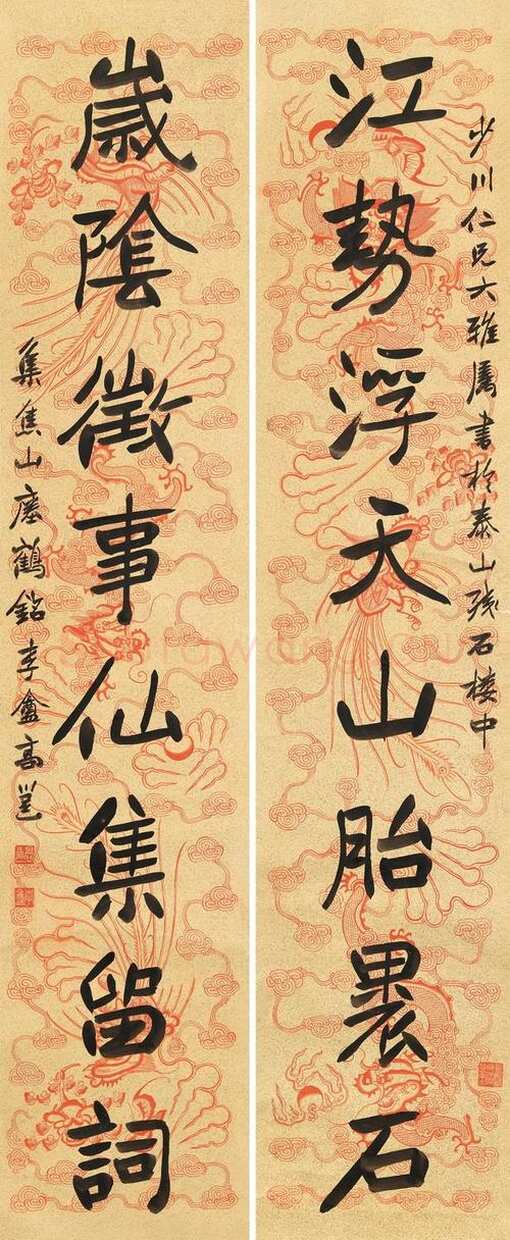 少川仁兄大雅屬書於泰山殘石樓中
江勢浮天山胎褁石
嵗隂徵事仙集留詞
集焦山瘞鶴銘李盦高邕